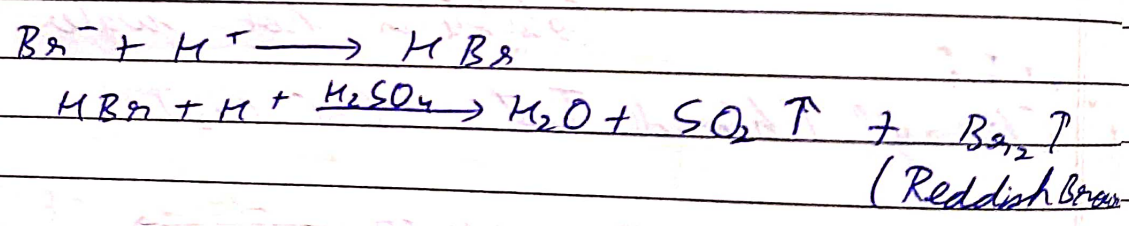 Br⁻ + H⁺ ⟶ HBr
HBr + H⁺ H₂SO₄⟶ H₂O + SO₂ ↑ + Br₂ ↑
(Reddish Brown